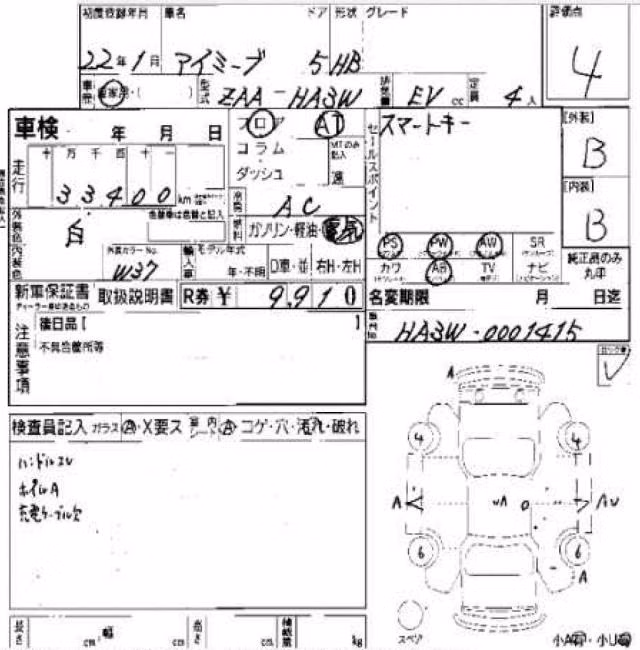 初度登録年月 車名 ドア 形状 グレード 評価点
22年1月 アイミーブ 5 HB 4
車歴 自家用・( ) 型式 ZAA-HA3W 排気量 EV cc 定員 4人
車検 年 月 日 フロア AT スマートキー [外装]
コラム MT のみ記入 B
走行 十万千百十一 ダッシュ 速 セールスポイント
33400 km 冷房 AC [内装]
外装色 白 色替車は色替と記入 燃料 ガソリン・軽油・電気 B
内装色 外装カラーNo. W37 輸入車 モデル年式 年・不明 D車・並 右H・左H
PS PW AW SR
カワ AB TV ナビ 純正品のみ丸中
新車保証書 取扱説明書 R券 ¥ 9,910 名変期限 月 日迄
注意事項 後日品 [ ]
不具合箇所等
HA3W-0001415
検査員記入 ガラス A・X要ス 室内シート A・コゲ・穴・汚れ・破れ
ハンドルスレ
ホイルA
充電ケーブル欠
A
4 4
A UA AU
6 6
A
スペア 小A・小U
長さ cm 幅 cm 高さ cm 積載量 kg